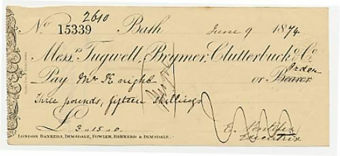 2610
No. 15339 Bath June 9 1874
Mess.rs Tugwell, Brymer, Clutterbuck & Co.
Pay Mr Knight or Bearer
Order
Three pounds, fifteen shillings
£ 3.15.0
LONDON BANKERS, DIMSDALE, FOWLER, BARNARD & DIMSDALE.